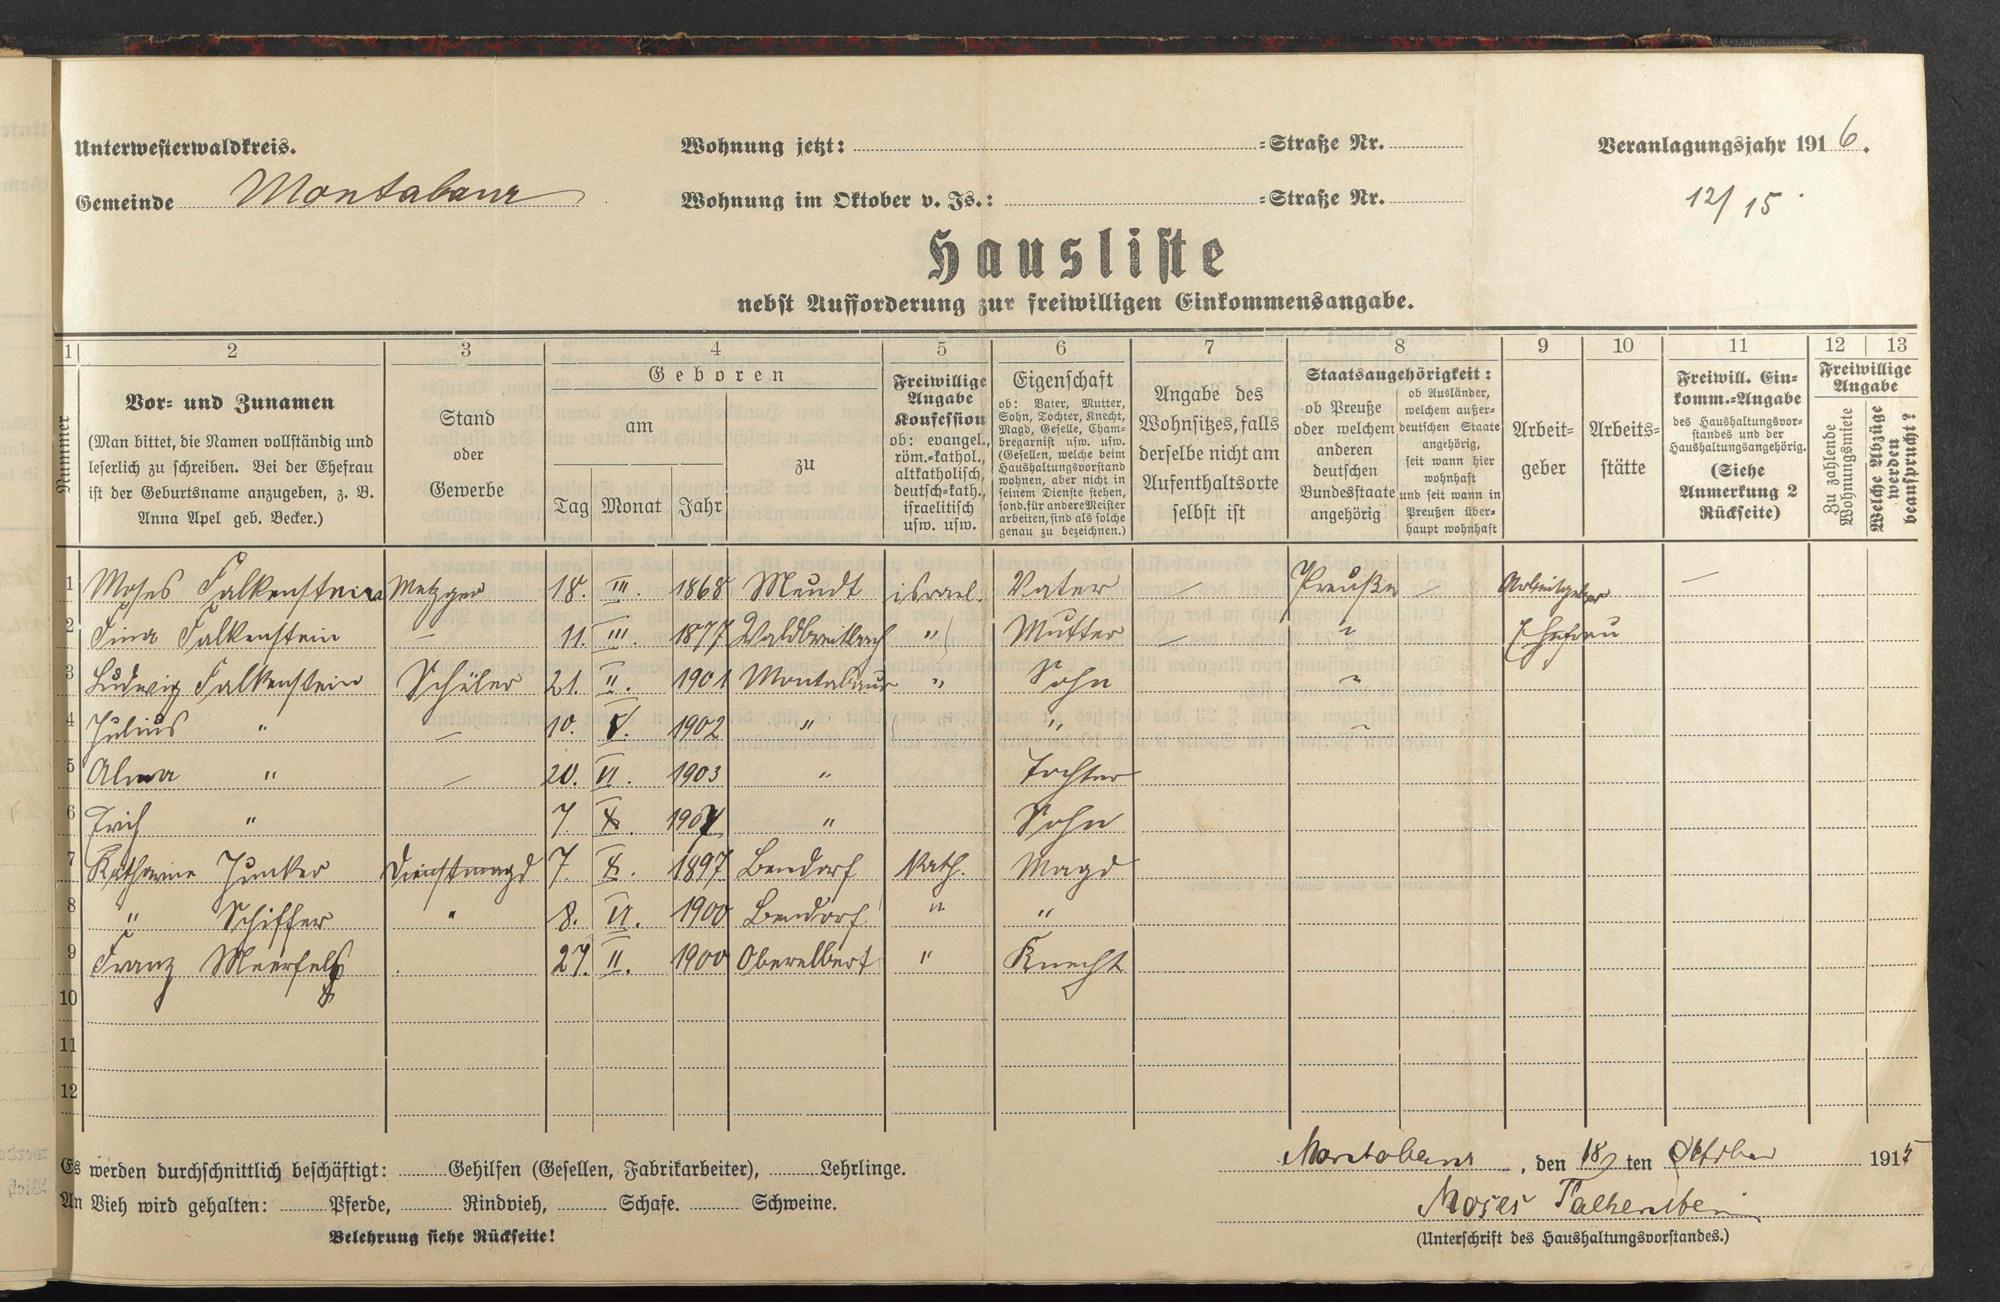 Unterwesterwaldkreis.
Wohnung jetzt: -Straße Nr.
Veranlagungsjahr 1916.
Gemeinde Montabaur
Wohnung im Oktober v. Js.: -Straße Nr.
12/15
Hausliste
nebst Aufforderung zur freiwilligen Einkommensangabe.
1 2 3 4 5 6 7 8 9 10 11 12 13
Nummer
Vor- und Zunamen
(Man bittet, die Namen vollständig und
leserlich zu schreiben. Bei der Ehefrau
ist der Geburtsname anzugeben, z. B.
Anna Apel geb. Becker.)
Stand
oder
Gewerbe
Geboren
am
Tag Monat Jahr
zu
Freiwillige
Angabe
Konfession
ob: evangel.,
röm.-kathol.,
altkatholisch,
deutsch-kath.,
israelitisch
usw. usw.
Eigenschaft
ob: Vater, Mutter,
Sohn, Tochter, Knecht,
Magd, Geselle, Cham-
bregarnist usw. usw.
(Gesellen, welche beim
Haushaltungsvorstand
wohnen, aber nicht in
seinem Dienste stehen,
sond. für andere Meister
arbeiten, sind als solche
genau zu bezeichnen.)
Angabe des
Wohnsitzes, falls
derselbe nicht am
Aufenthaltsorte
selbst ist
Staatsangehörigkeit:
ob Preuße
oder welchem
anderen
deutschen
Bundesstaate
angehörig
ob Ausländer,
welchem außer-
deutschen Staate
angehörig,
seit wann hier
wohnhaft
und seit wann in
Preußen über-
haupt wohnhaft
Arbeit-
geber
Arbeits-
stätte
Freiwill. Ein-
komm.-Angabe
des Haushaltungsvor-
standes und der
Haushaltungsangehörig.
(Siehe
Anmerkung 2
Rückseite)
Freiwillige
Angabe
Zu zahlende
Wohnungsmiete
Welche Abzüge
werden
beansprucht?
1 Moses Falkenstein Metzger 18. III. 1868 Meudt israel. Vater — Preuße — Arbeitgeber —
2 Tina Falkenstein — 11. III. 1877 Waldbreitbach " Mutter — " Ehefrau
3 Ludwig Falkenstein Schüler 21. II. 1901 Montabaur " Sohn "
4 Julius " — 10. V. 1902 " " "
5 Alma " — 20. VI. 1903 " Tochter
6 Erich " 7. X. 1907 " Sohn
7 Katharine Junker Dienstmagd 7 X. 1897 Bendorf Kath. Magd
8 " Schiffer " 8. VI. 1900 Bendorf " "
9 Franz 27. II. 1900 Oberelbert " Knecht
10
11
12
Es werden durchschnittlich beschäftigt: Gehilfen (Gesellen, Fabrikarbeiter), Lehrlinge.
Montabaur, den 18 ten Oktober 1915
An Vieh wird gehalten: Pferde, Rindvieh, Schafe. Schweine.
Moses Falkenstein
Belehrung siehe Rückseite!
(Unterschrift des Haushaltungsvorstandes.)